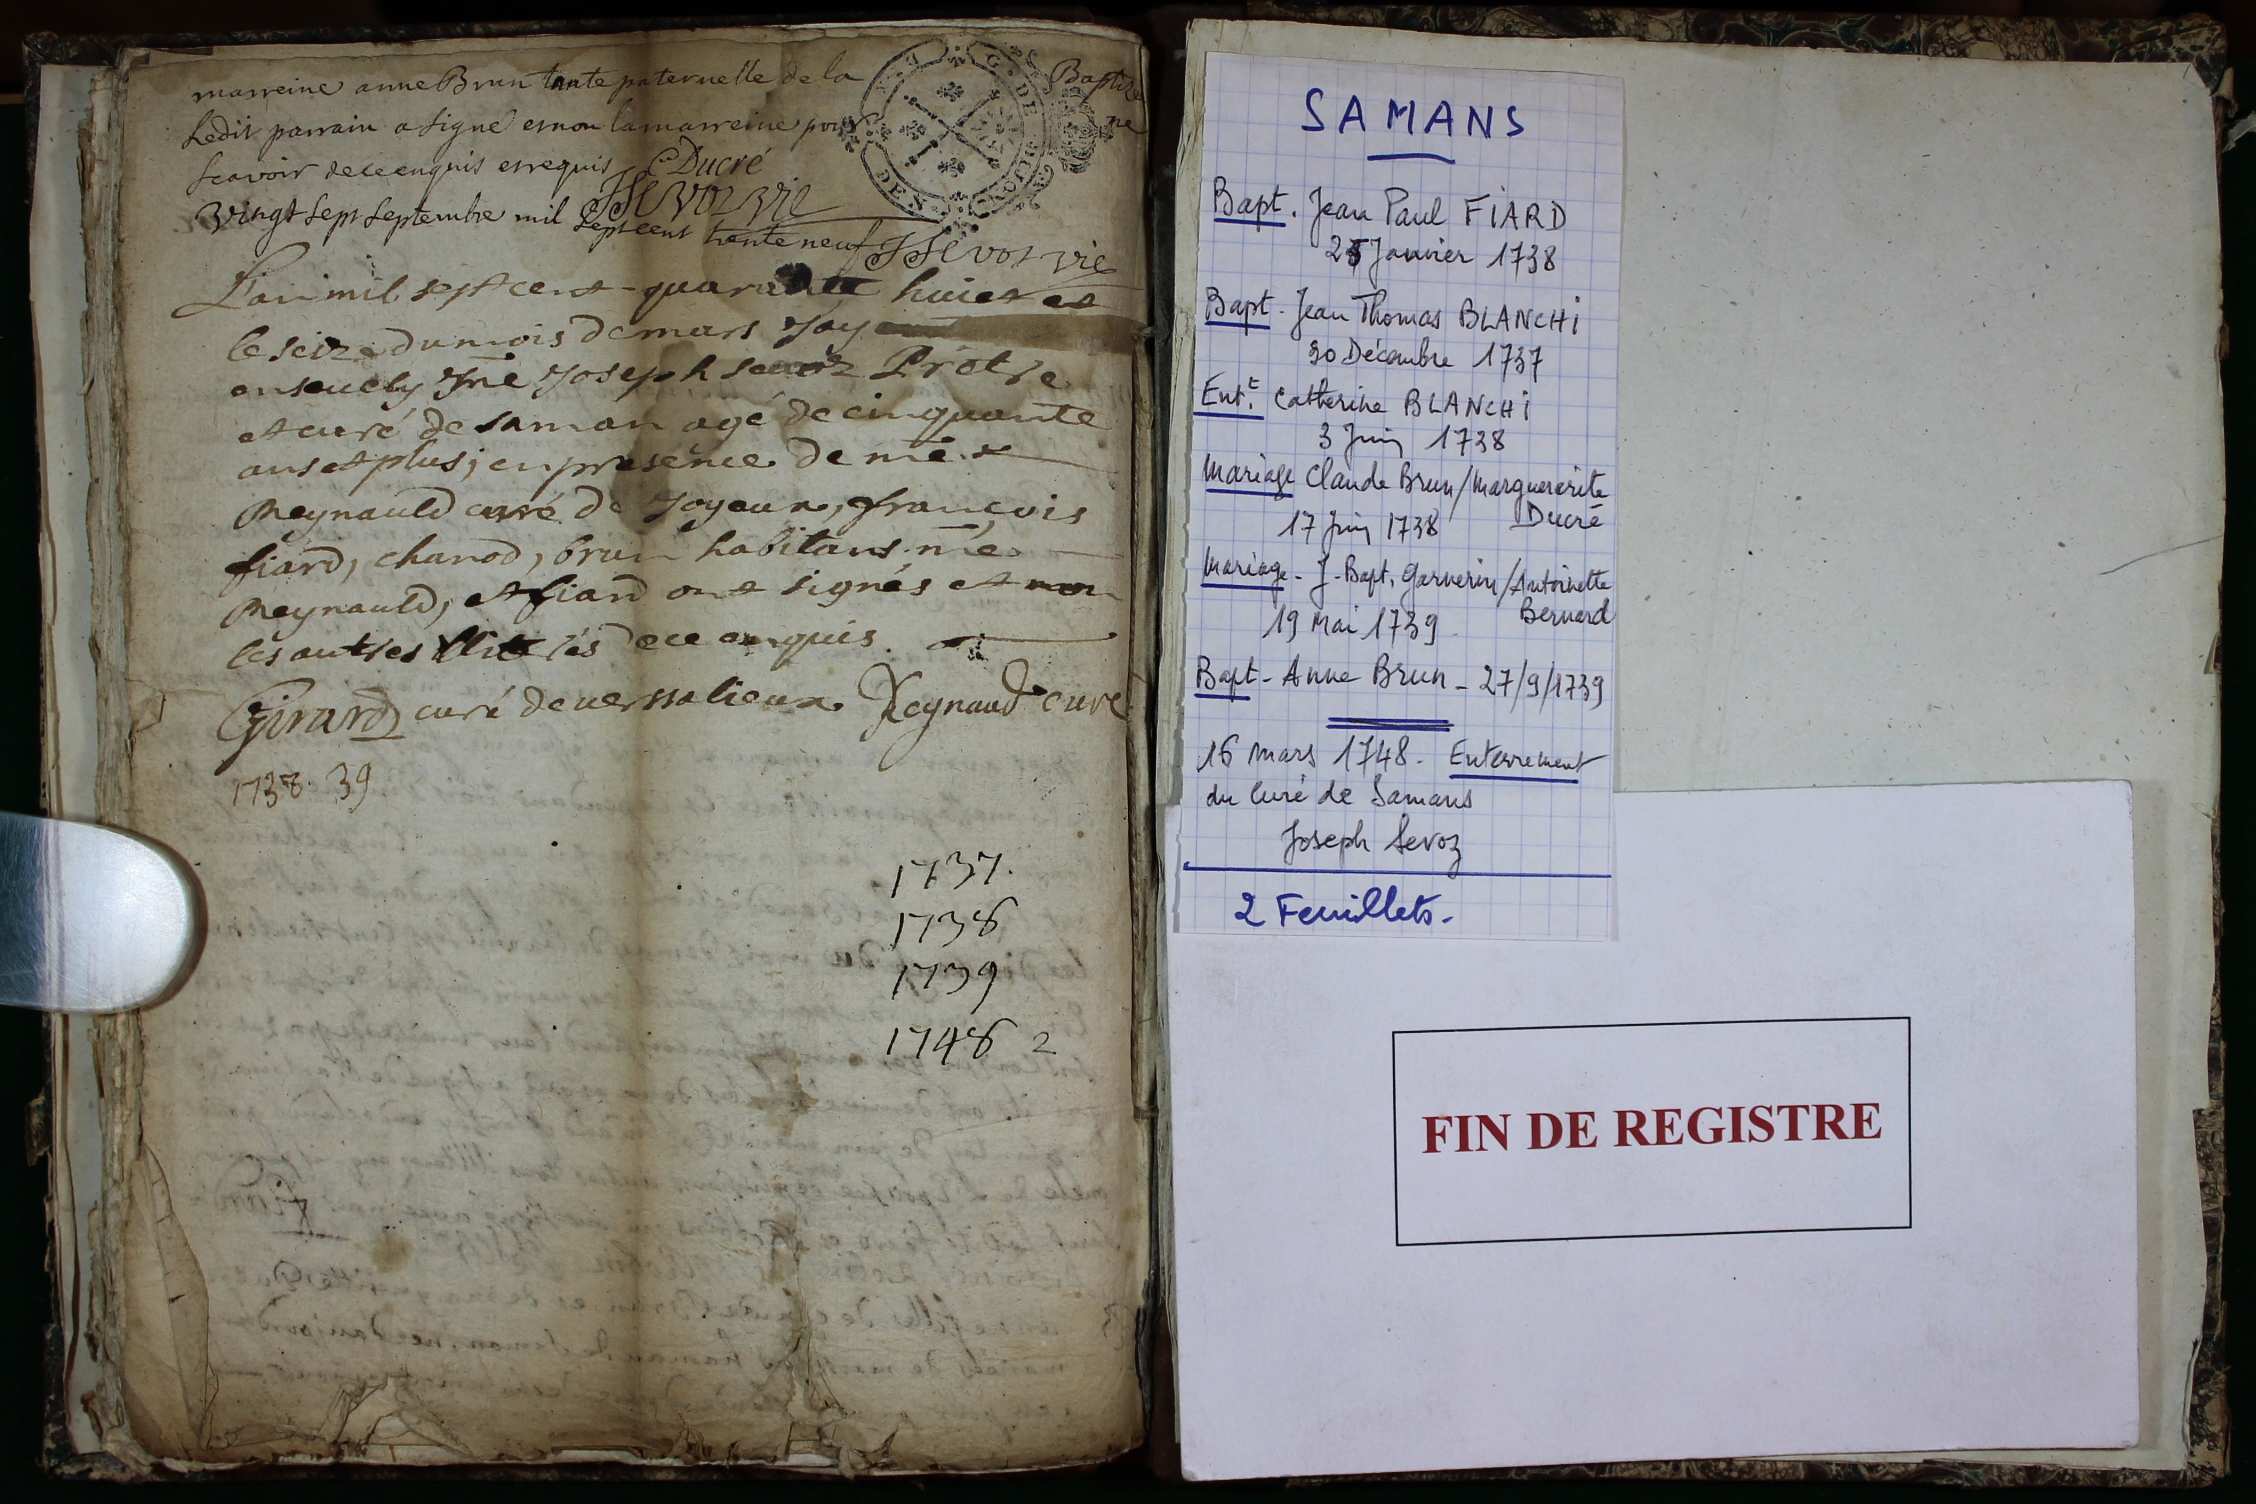 marreine anne Brun tante paternelle de la Baptizé
Ledit parrain a signé et non la marreine pour ne
scavoir de ce enquis et requis Ducré
JSevoz vic
vingt sept septembre mil sept cent trente neuf JSevoz vic
L'an mil sept cent quarante huict et
le seize du mois de mars j'ay
enseuely mre Joseph sevoz Prêtre
et curé de saman agé de cinquante
ans et plus, en presence de mre
Reynauld curé de Joyeux, françois
fiard, chanod, brun habitans mre
Reynauld, et fiard ont signés et non
les autres illitérés de ce enquis.
Girard curé de versalieux Reynaud curé
1738. 39
1737.
1738
1739
1748 2
SAMANS
Bapt. Jean Paul FIARD
25 Janvier 1738
Bapt. Jean Thomas BLANCHI
30 Décembre 1737
Ent.t Catherine BLANCHI
3 Juin 1738
Mariage Claude Brun/Marguererite
Ducré
17 Juin 1738
Mariage - J. Bapt. Garnerin/Antoinette
Bernard
19 Mai 1739
Bapt - Anne Brun - 27/9/1739
16 mars 1748. Enterrement
du Curé de Samans
Joseph Sevoz
2 Feuillets.
FIN DE REGISTRE